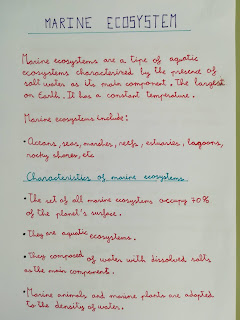 MARINE ECOSYSTEM
Marine ecosystems are a tipe of aquatic
ecosystems characterized by the presence of
salt water as its main component. The largest
on Earth. It has a constant temprature.
Marine ecosystems include:
• Oceans, seas, marshes, reefs, estuaries, lagoons,
rocky shores, etc
Characteristics of marine ecosystems
• The set of all marine ecosystems occupy 70%
of the planet's surface.
• They are aquatic ecosystems.
• They composed of water with dissolved salts
as the main component.
• Marine animals and marine plants are adapted
to the density of water.